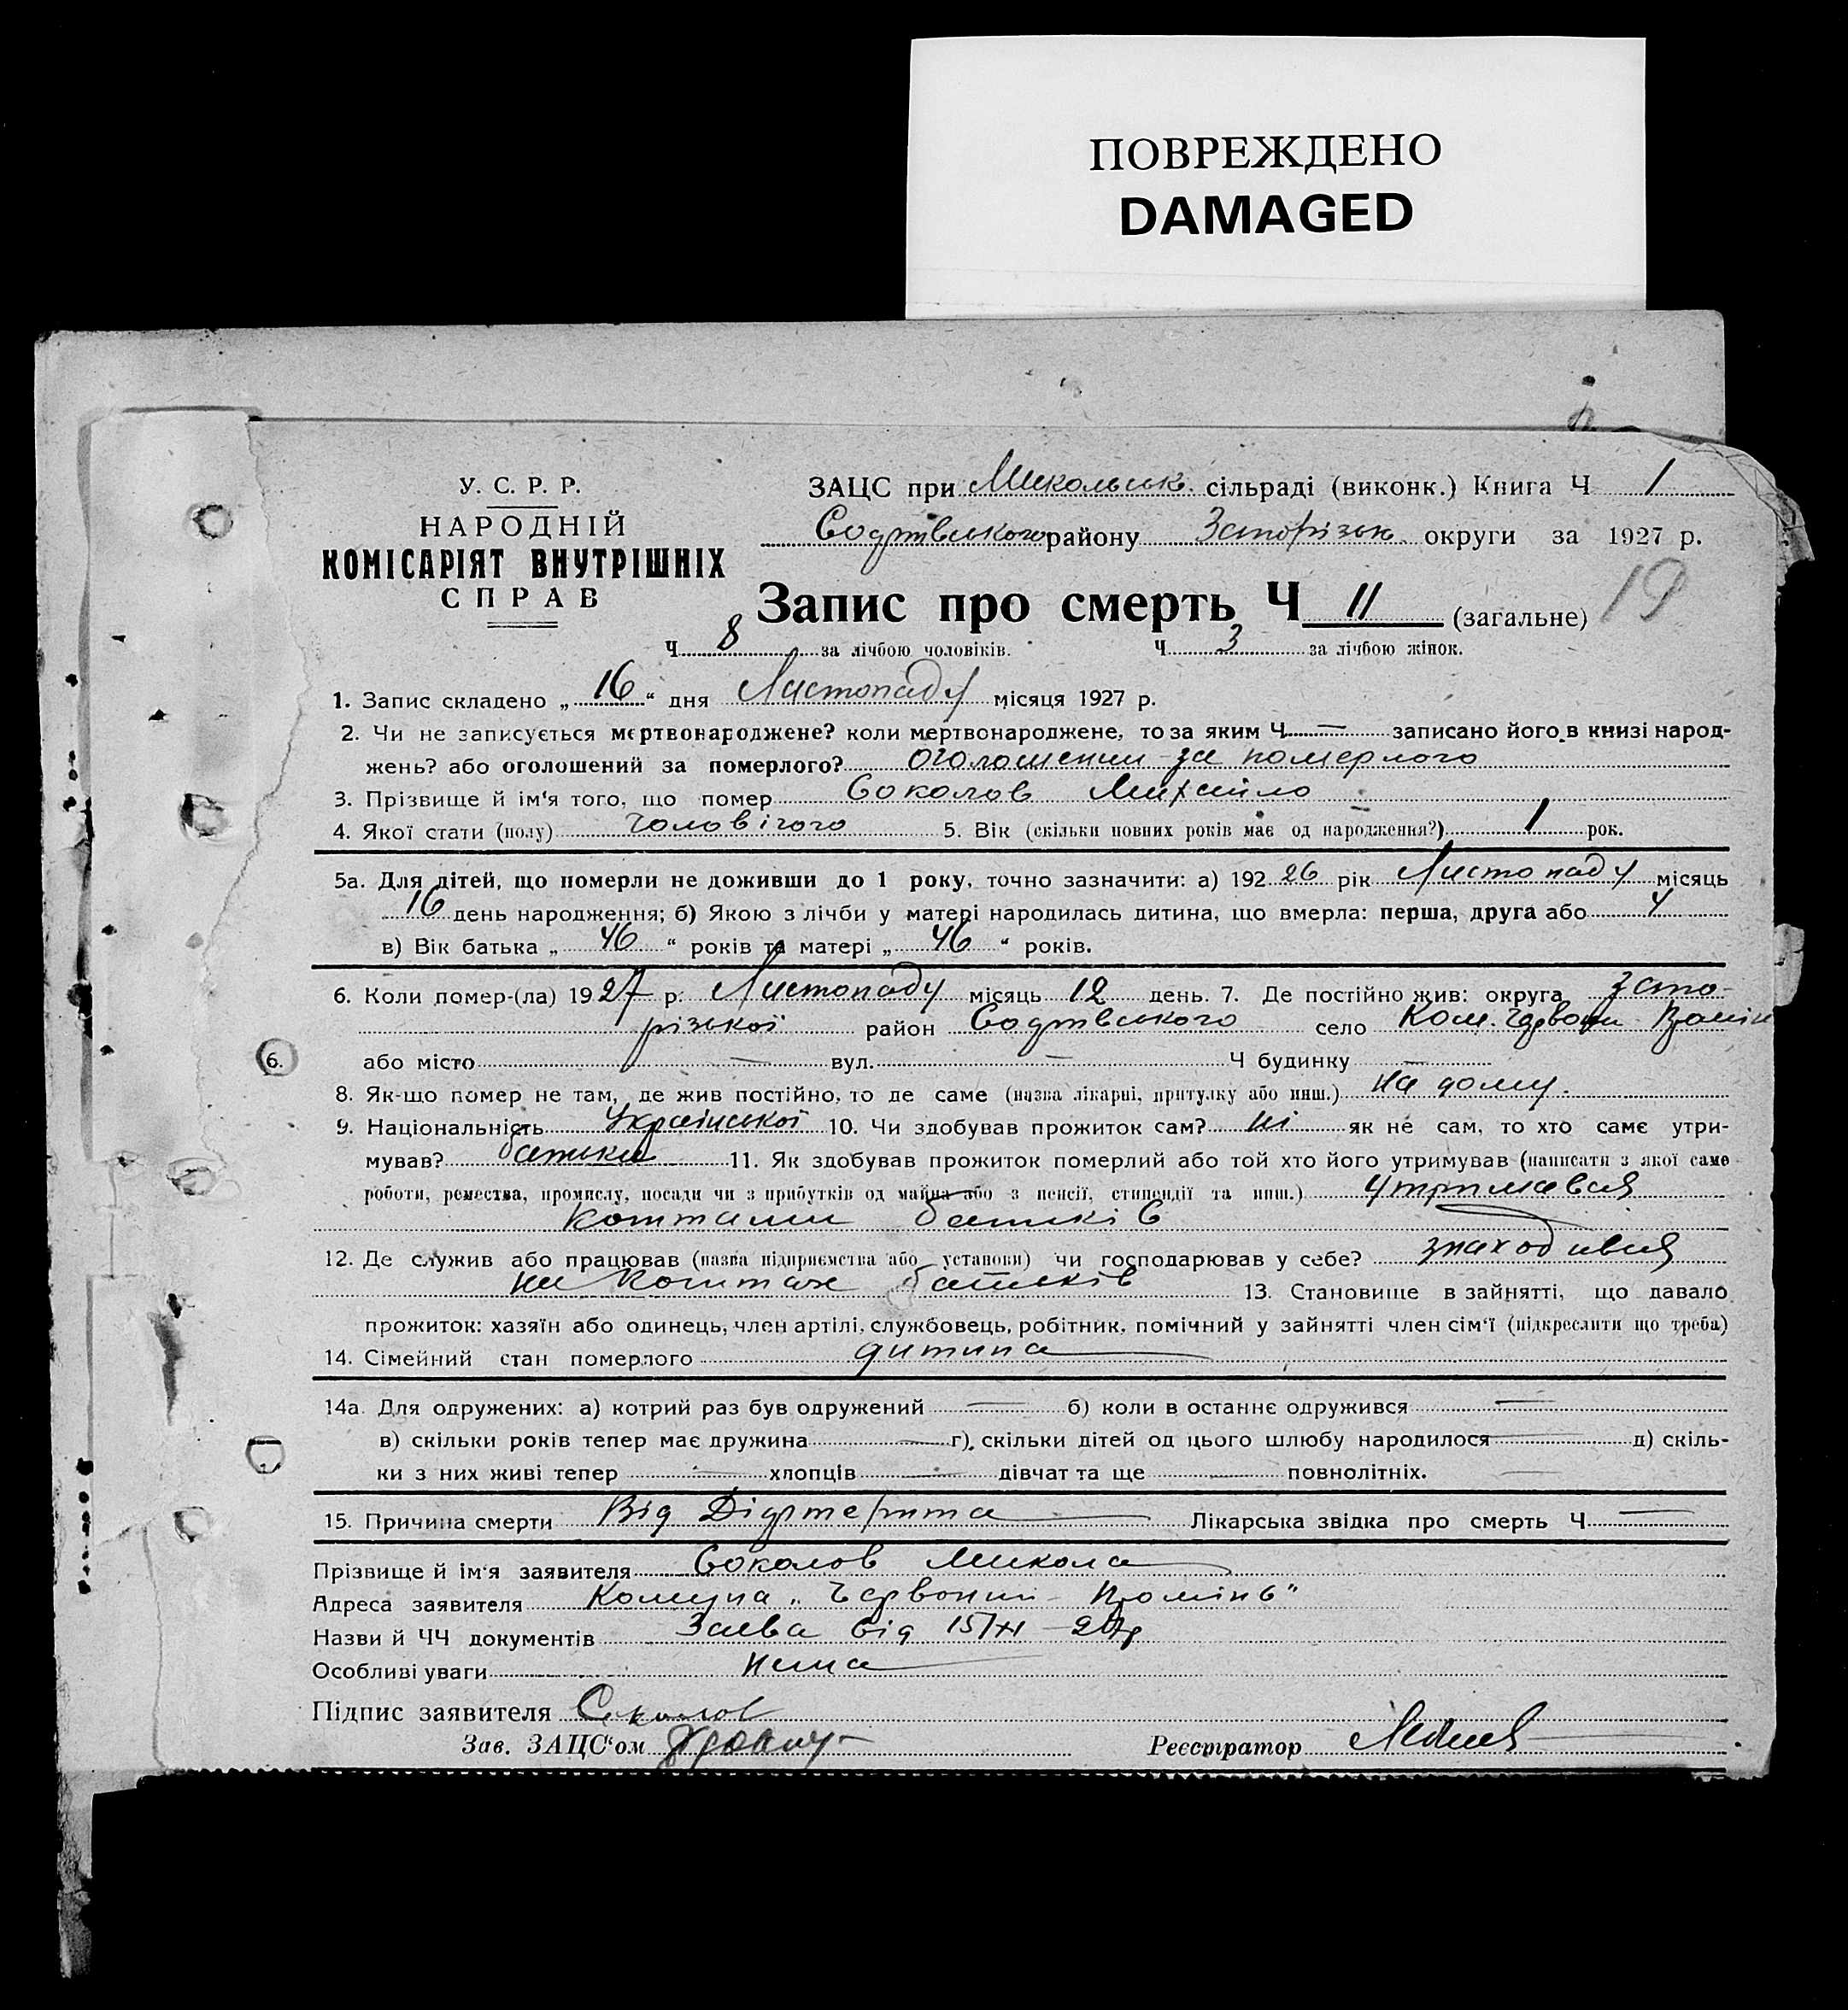 ПОВРЕЖДЕНО
DAMAGED
У. С. Р. Р.
НАРОДНІЙ
КОМІСАРІЯТ ВНУТРІШНІХ
СПРАВ
ЗАЦС при Микольськ. сільраді (виконк.) Книга Ч 1
району Запорізьк. округи за 1927 р.
Запис про смерть Ч 11 (загальне) 19
Ч 8 за лічбою чоловіків. Ч 3 за лічбою жінок.
1. Запис складено „ 16 “ дня Листопаду місяця 1927 р.
2. Чи не записується мертвонароджене? коли мертвонароджене, то за яким Ч — записано його в книзі народ-
жень? або оголошений за померлого? оголошении за померлого
3. Прізвище й ім'я того, що помер Соколов Михайло
4. Якої стати (полу) чоловічого 5. Вік (скільки повних років має од народження?) 1 рок.
5а. Для дітей, що померли не доживши до 1 року, точно зазначити: а) 192 26 рік Листопаду місяць
16 день народження; б) Якою з лічби у матері народилась дитина, що вмерла: перша, друга або 4
в) Вік батька „ 46 “ років та матері „ 46 “ років.
6. Коли помер-(ла) 19 27 р. Листопаду місяць 12 день. 7. Де постійно жив: округа Запо-
різької район село Ком. Червони Промінь
або місто — вул. — Ч будинку —
8. Як-що помер не там, де жив постійно, то де саме (назва лікарні, притулку або инш.) на дому.
9. Національність Української 10. Чи здобував прожиток сам? ні як не сам, то хто саме утри-
мував? батьки 11. Як здобував прожиток померлий або той хто його утримував (написати з якої саме
роботи, ремества, промислу, посади чи з прибутків од майна або з пенсії, стипендії та инш.) утримався
коштами батьків
12. Де служив або працював (назва підприємства або установи) чи господарював у себе? знаходився
на коштах батьків 13. Становище в зайнятті, що давало
прожиток: хазяїн або одинець, член артілі, службовець, робітник, помічний у зайнятті член сім'ї (підкреслити що треба)
14. Сімейний стан померлого дитина
14а. Для одружених: а) котрий раз був одружений — б) коли в останнє одружився —
в) скільки років тепер має дружина — г) скільки дітей од цього шлюбу народилося — д) скіль-
ки з них живі тепер — хлопців — дівчат та ще — повнолітніх. —
15. Причина смерти Від Діфтерита Лікарська звідка про смерть Ч —
Прізвище й ім'я заявителя Соколов Микола
Адреса заявителя Комуна „Червонии Промінь"
Назви й ЧЧ документів Заява від 15/XI – 27р
Особливі уваги нема
Підпис заявителя Соколов
Зав. ЗАЦС'ом
Реєстратор
6.